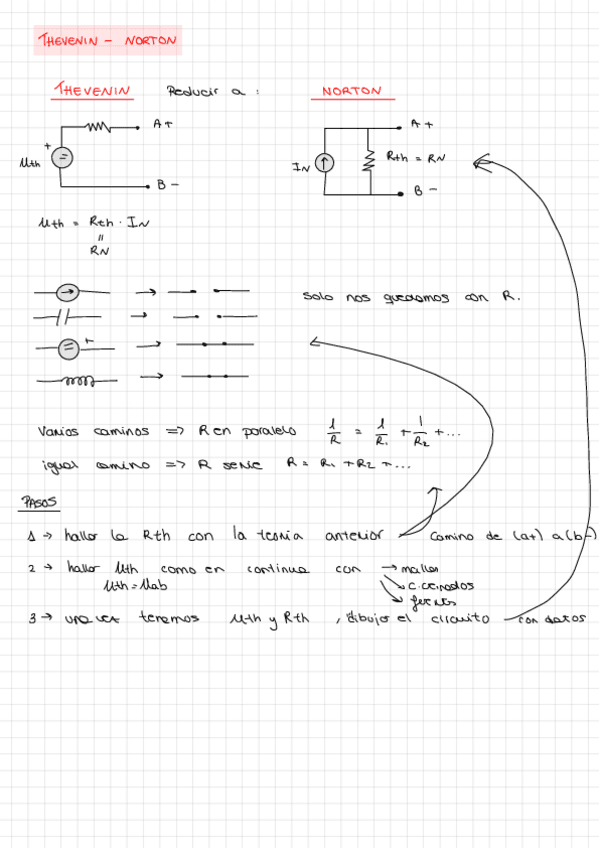 THEVENIN - NORTON
THEVENIN Reducir a : NORTON
+ A+
Uth
B -
A +
IN Rth = RN
B -
Uth = Rth · IN
"
RN
+
Solo nos quedamos con R.
Varios caminos => R en paralelo 1/R = 1/R1 + 1/R2 + ...
igual camino => R serie R = R1 + R2 + ...
PASOS
1 → hallar la Rth con la teoría anterior camino de (a+) a (b-)
2 → hallar Uth como en continua con → mallas
Uth = Uab
3 → una vez tenemos Uth y Rth , dibujo el circuito con datos